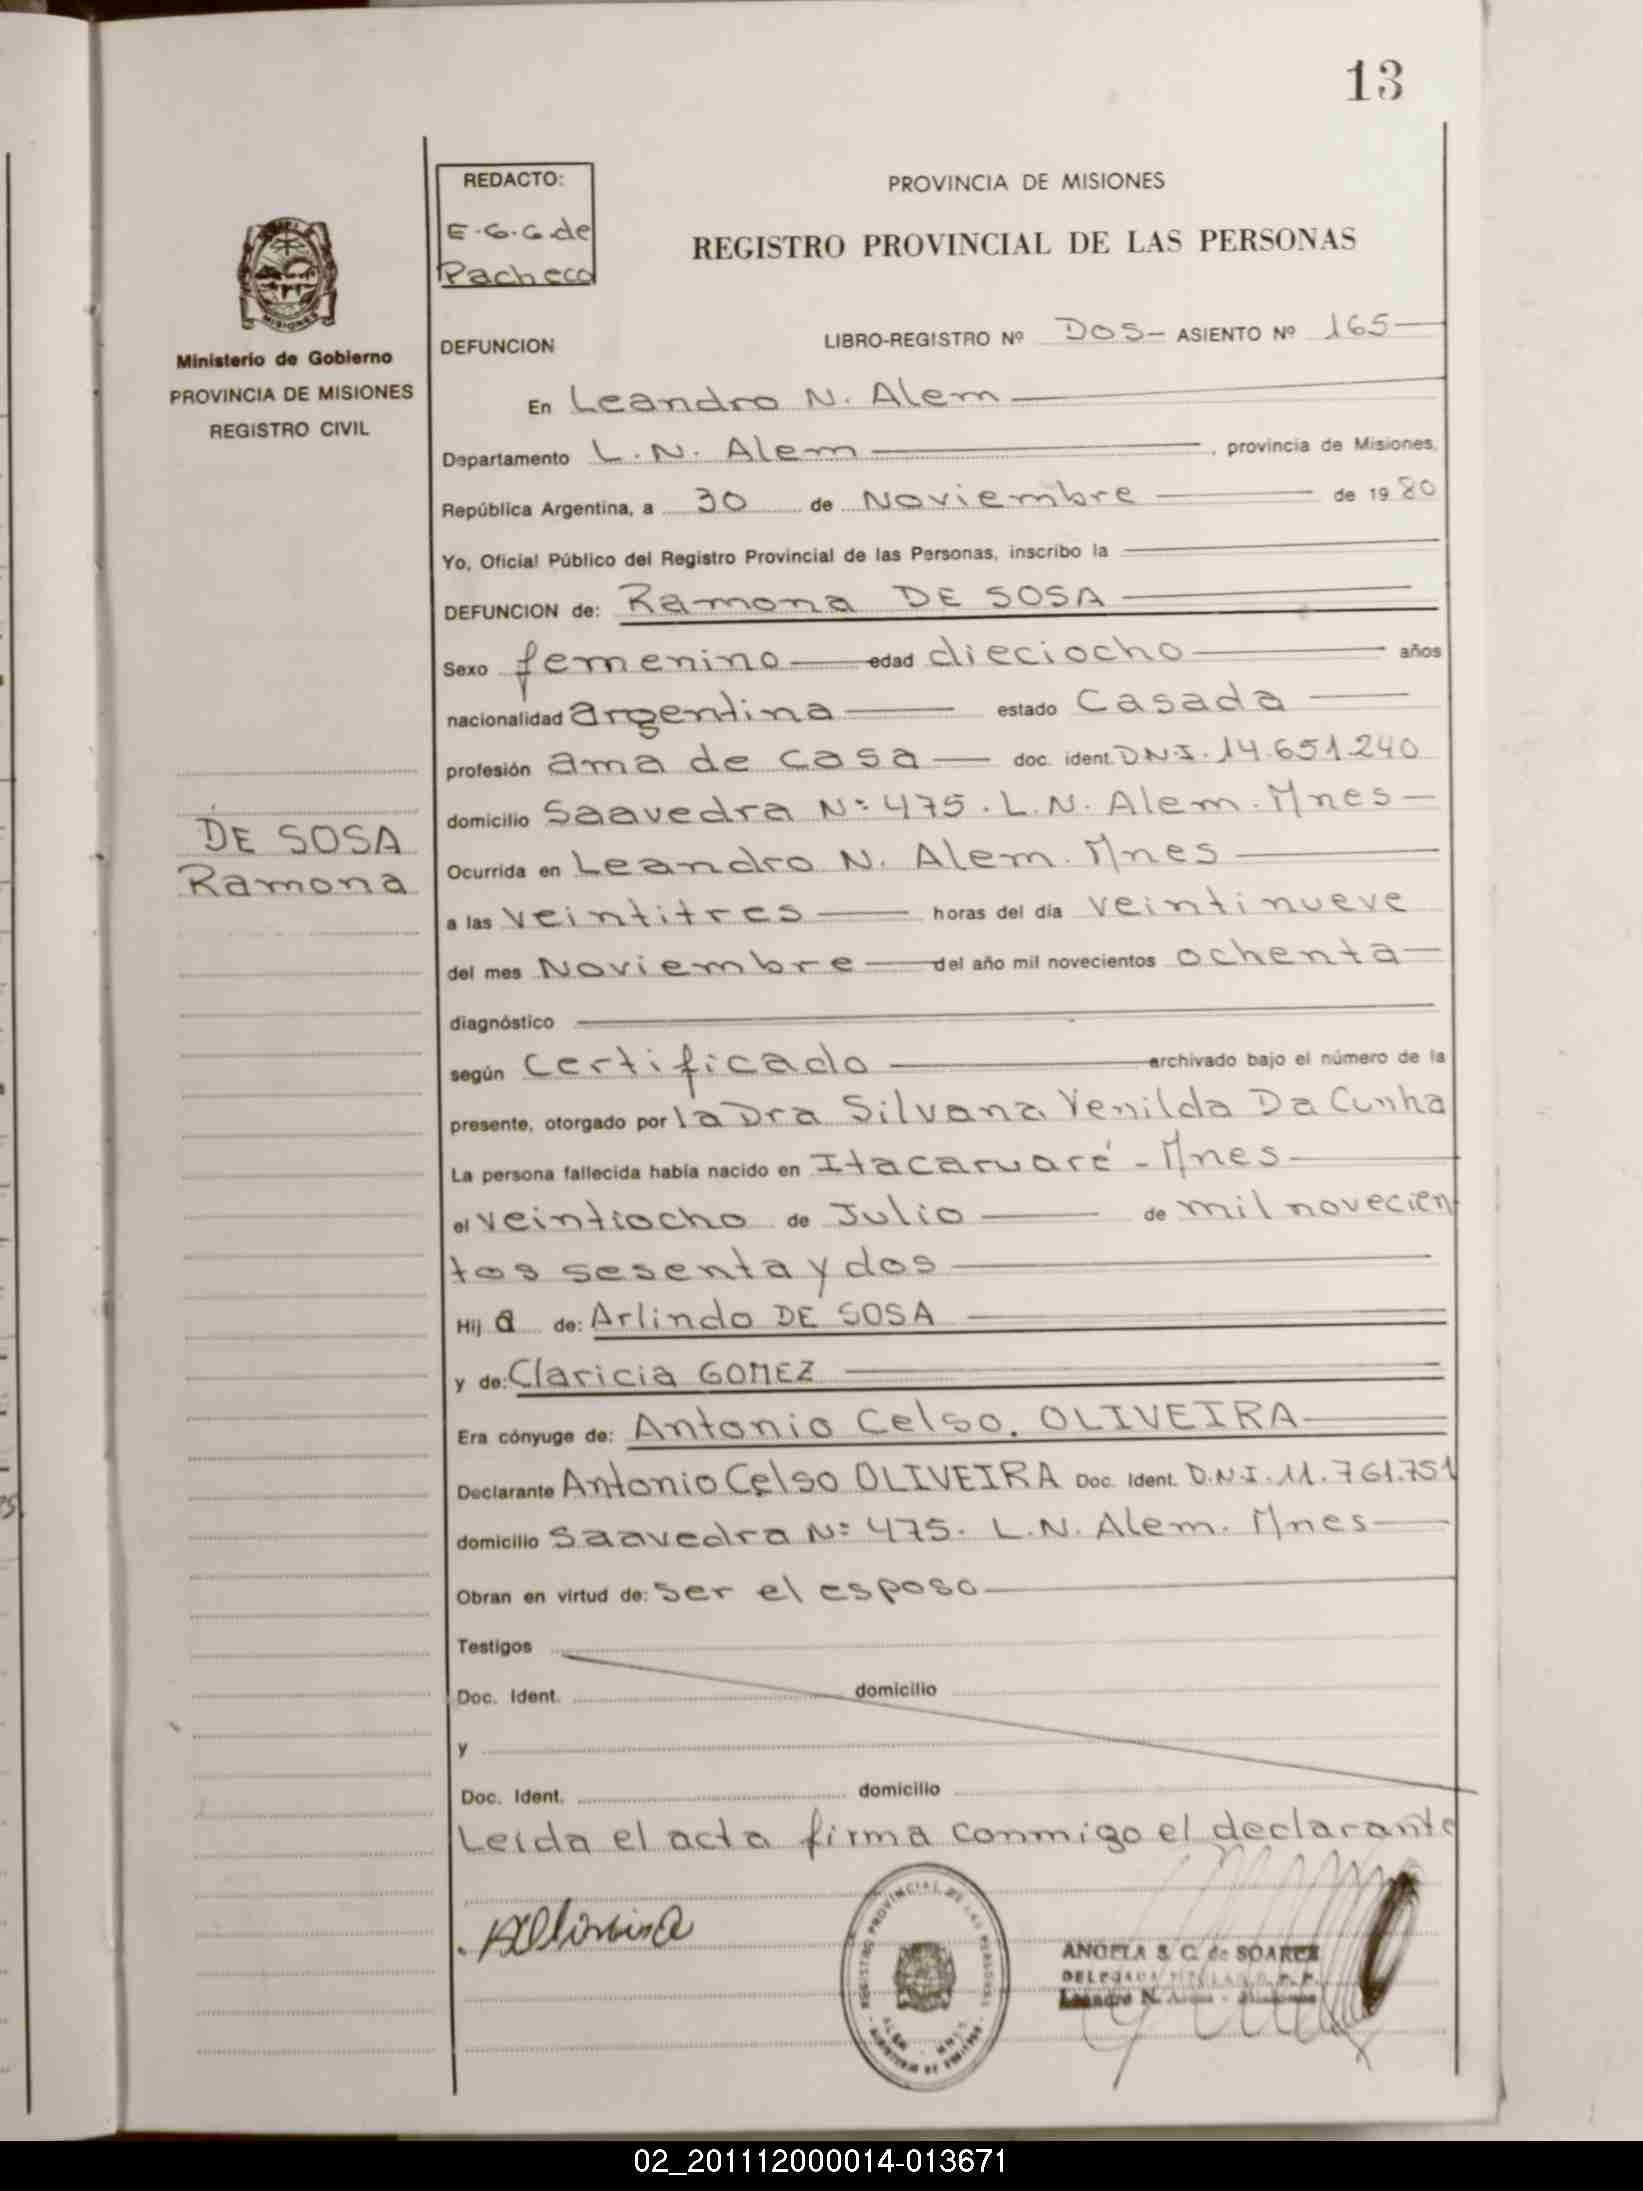 13
REDACTO:
E.G.G.de
Pacheco
PROVINCIA DE MISIONES
REGISTRO PROVINCIAL DE LAS PERSONAS
MISIONES
Ministerio de Gobierno
PROVINCIA DE MISIONES
REGISTRO CIVIL
DEFUNCION LIBRO-REGISTRO Nº DOS- ASIENTO Nº 165
En Leandro N. Alem
Departamento L.N. Alem, provincia de Misiones,
República Argentina, a 30 de Noviembre de 1980
Yo, Oficial Público del Registro Provincial de las Personas, inscribo la
DEFUNCION de: Ramona DE SOSA
Sexo femenino edad dieciocho años
nacionalidad argentina estado Casada
profesión ama de casa doc. ident. D.N.I. 14.651.240
domicilio Saavedra Nº 475. L.N. Alem. Mnes
DE SOSA
Ramona
Ocurrida en Leandro N. Alem. Mnes
a las veintitres horas del día veintinueve
del mes Noviembre del año mil novecientos ochenta
diagnóstico
según certificado archivado bajo el número de la
presente, otorgado por la Dra Silvana Venilda Da Cunha
La persona fallecida había nacido en Itacaruaré - Mnes
el veintiocho de Julio de mil novecien
tos sesenta y dos
Hij a de: Arlindo DE SOSA
y de: Claricia GOMEZ
Era cónyuge de: Antonio Celso. OLIVEIRA
Declarante Antonio Celso OLIVEIRA Doc. Ident. D.N.I. 11.761.751
domicilio Saavedra Nº 475. L.N. Alem. Mnes
Obran en virtud de: ser el esposo
Testigos
Doc. Ident. domicilio
y
Doc. Ident. domicilio
Leida el acta firma conmigo el declarante
REGISTRO PROVINCIAL DE LAS PERSONAS
ANGELA S. C. de SOAREZ
DELEGADA TITULAR
Leandro N. Alem - Misiones
02_201112000014-013671